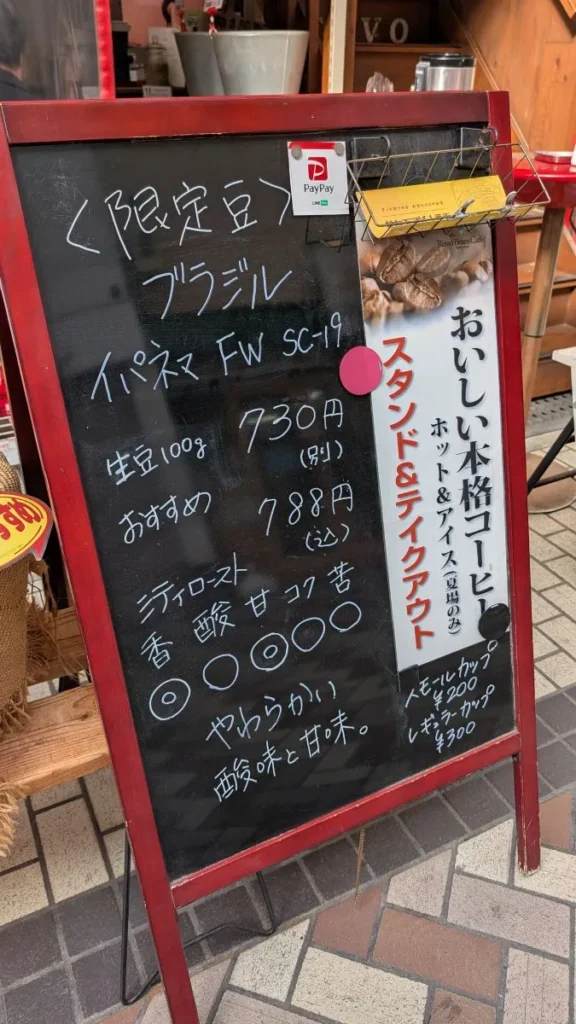 〈限定豆〉
ブラジル
イパネマ FW SC-19
生豆100g 730円
(別)
おすすめ 788円
(込)
ミディロースト
香 酸 甘 コク 苦
◎ ○ ◎ ○ ○
やわらかい
酸味と甘味。
PayPay
LINE Pay
おいしい本格コーヒー
ホット&アイス(夏場のみ)
スタンド&テイクアウト
スモールカップ
¥200
レギュラーカップ
¥300
VO